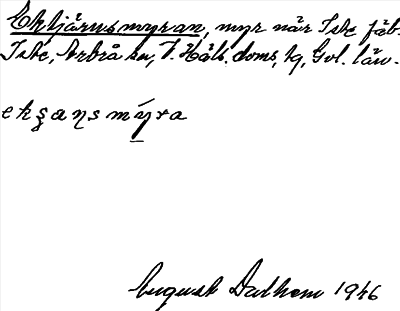 Ektjärnsmyran, myr när Iste fäb.
Iste, Arbrå sn, V. Häls. doms. tg, Gvl. län.
August Dalhem 1946